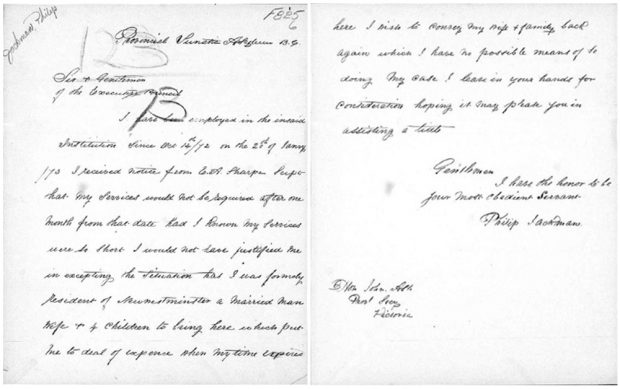 Jackman Philip
F 825
6
Provincial Lunatic Asylum B.C.
Sir & Gentlemen
of the Executive Council
I have been employed in the insaid
Institution Since Dec 14th/72 on the 25th of Janary
/73 I received notice from Supt
that my services would not be required after one
Month from that date Had I known my services
were so short I would not have justified me
in excepting the situation has I was formely
resident of Newestminster a married man
wife & 4 children to bring here which put
me to deal of expence when my time expired
here I wish to convey my wife & family back
again which I have no possible means of so
doing My case I leave in your hands for
Consideration hoping it may please you in
assisting a little
Gentlemen
I have the honor to be
your most obedient Servant
Philip Jackman
Hon John Ash
Provl Secy
Victoria